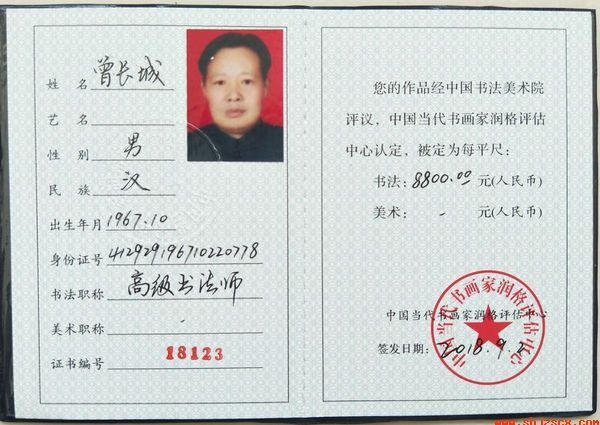 姓 名 曾长城
艺 名
性 别 男
民 族 汉
出生年月 1967.10
身份证号 412929196710220778
书法职称 高级书法师
美术职称 -
证书编号 18123
您的作品经中国书法美术院
评议，中国当代书画家润格评估
中心认定，被定为每平尺：
书法：8800.00 元(人民币)
美术： - 元(人民币)
中国当代书画家润格评估中心
签发日期：2018.9.2
中国当代书画家润格评估中心
www.SDJZSCX.COM